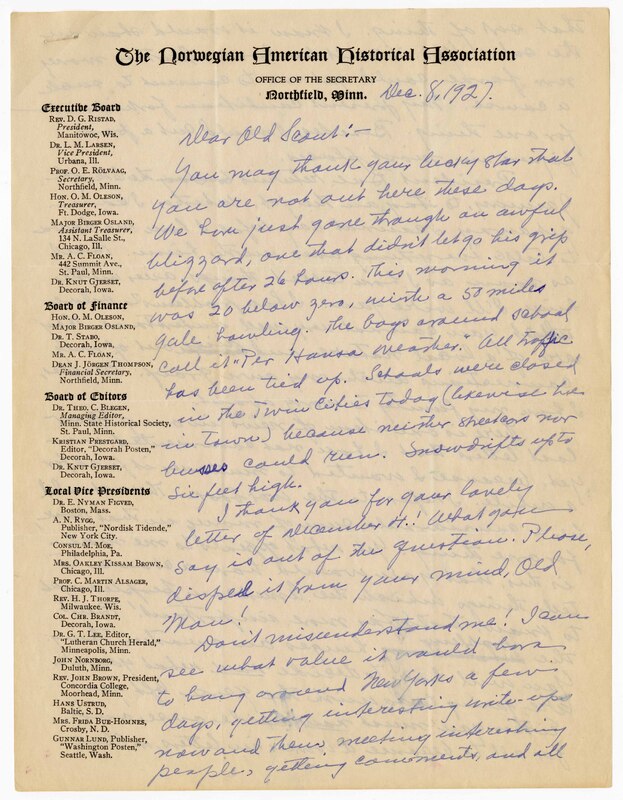 The Norwegian American Historical Association
OFFICE OF THE SECRETARY
Northfield, Minn. Dec. 8, 1927.
Executive Board
REV. D. G. RISTAD,
President,
Manitowoc, Wis.
DR. L. M. LARSEN,
Vice President,
Urbana, Ill.
PROF. O. E. RÖLVAAG,
Secretary,
Northfield, Minn.
HON. O. M. OLESON,
Treasurer,
Ft. Dodge, Iowa.
MAJOR BIRGER OSLAND,
Assistant Treasurer,
134 N. LaSalle St.,
Chicago, Ill.
MR. A. C. FLOAN,
442 Summit Ave.,
St. Paul, Minn.
DR. KNUT GJERSET,
Decorah, Iowa.
Board of Finance
HON. O. M. OLESON,
MAJOR BIRGER OSLAND,
DR. T. STABO,
Decorah, Iowa.
MR. A. C. FLOAN,
DEAN J. JÖRGEN THOMPSON,
Financial Secretary,
Northfield, Minn.
Board of Editors
DR. THEO. C. BLEGEN,
Managing Editor,
Minn. State Historical Society,
St. Paul, Minn.
KRISTIAN PRESTGARD,
Editor, "Decorah Posten,"
Decorah, Iowa.
DR. KNUT GJERSET,
Decorah, Iowa.
Local Vice Presidents
DR. E. NYMAN FIGVED,
Boston, Mass.
A. N. RYGG,
Publisher, "Nordisk Tidende,"
New York City.
CONSUL M. MOE,
Philadelphia, Pa.
MRS. OAKLEY KISSAM BROWN,
Chicago, Ill.
PROF. C. MARTIN ALSAGER,
Chicago, Ill.
REV. H. J. THORPE,
Milwaukee. Wis.
COL. CHR. BRANDT,
Decorah, Iowa.
DR. G. T. LEE, Editor,
"Lutheran Church Herald,"
Minneapolis, Minn.
JOHN NORNBORG,
Duluth, Minn.
REV. JOHN BROWN, President,
Concordia College,
Moorhead, Minn.
HANS USTRUD,
Baltic, S. D.
MRS. FRIDA BUE-HOMNES,
Crosby, N. D.
GUNNAR LUND, Publisher,
"Washington Posten,"
Seattle, Wash.
Dear Old Scout:-
You may thank your lucky star that
you are not out here these days.
We have just gone through an awful
blizzard, one that didn't let go his grip
before after 26 hours. This morning it
was 20 below zero, with a 50 miles
gale howling. The boys around school
call it "Per Hansa weather." All traffic
has been tied up. Schools were closed
in the Twin Cities today (likewise here
in town) because neither streetcars nor
busses could run. Snowdrifts up to
six feet high.
I thank you for your lovely
letter of December! What you
say is out of the question. Please,
dispel it from your mind, Old
Man!
Don't misunderstand me! I can
see what value it would have
to hang around New York a few
days, getting interesting write ups
now and then, meeting interesting
people, getting comments, and all